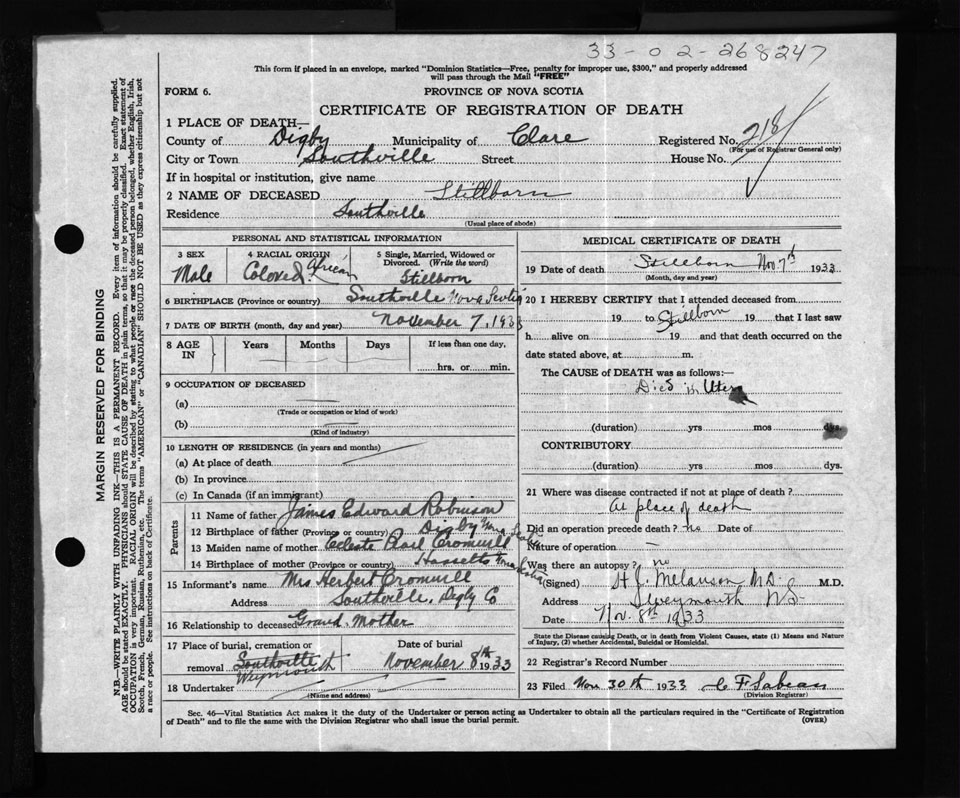 33-02-268247
This form if placed in an envelope, marked "Dominion Statistics—Free, penalty for improper use, $300," and properly addressed
will pass through the Mail "FREE"
FORM 6.
PROVINCE OF NOVA SCOTIA
CERTIFICATE OF REGISTRATION OF DEATH
1 PLACE OF DEATH—
County of Digby Municipality of Clare Registered No. 218
(For use of Registrar General only)
City or Town Southville Street House No.
If in hospital or institution, give name
2 NAME OF DECEASED Stillborn
Residence Southville
(Usual place of abode)
PERSONAL AND STATISTICAL INFORMATION
3 SEX 4 RACIAL ORIGIN 5 Single, Married, Widowed or
Divorced. (Write the word)
Male Colored African Stillborn
6 BIRTHPLACE (Province or country) Southville Nova Scotia
7 DATE OF BIRTH (month, day and year) November 7, 1933
8 AGE IN Years Months Days If less than one day,
hrs. or min.
9 OCCUPATION OF DECEASED
(a)
(Trade or occupation or kind of work)
(b)
(Kind of industry)
10 LENGTH OF RESIDENCE (in years and months)
(a) At place of death
(b) In province
(c) In Canada (if an immigrant)
Parents
11 Name of father James Edward Robinson
12 Birthplace of father (Province or country) Digby Nova Scotia
13 Maiden name of mother Celeste Cromwell
14 Birthplace of mother (Province or country) Hassetts Nova Scotia
15 Informant's name Mrs Herbert Cromwell
Address Southville, Digby Co
16 Relationship to deceased Grand Mother
17 Place of burial, cremation or Date of burial
removal Southville November 8th 1933
Weymouth
18 Undertaker
(Name and address)
MEDICAL CERTIFICATE OF DEATH
19 Date of death Stillborn Nov. 7th 1933
(Month, day and year)
20 I HEREBY CERTIFY that I attended deceased from
19 to Stillborn 19 that I last saw
h alive on 19 and that death occurred on the
date stated above, at m.
The CAUSE of DEATH was as follows:—
Died in Utero
(duration) yrs mos dys.
CONTRIBUTORY
(duration) yrs mos dys.
21 Where was disease contracted if not at place of death?
At place of death
Did an operation precede death? no Date of
Nature of operation —
Was there an autopsy? no
(Signed) H J. Melanson M.D. M.D.
Address Weymouth N.S.
Date Nov. 8th 1933
State the Disease causing Death, or in death from Violent Causes, state (1) Means and Nature
of Injury, (2) whether Accidental, Suicidal or Homicidal.
22 Registrar's Record Number
23 Filed Nov 30th 1933 C F Sabean
(Division Registrar)
Sec. 46—Vital Statistics Act makes it the duty of the Undertaker or person acting as Undertaker to obtain all the particulars required in the "Certificate of Registration
of Death" and to file the same with the Division Registrar who shall issue the burial permit.
(OVER)
MARGIN RESERVED FOR BINDING
N.B.—WRITE PLAINLY WITH UNFADING INK—THIS IS A PERMANENT RECORD. Every item of information should be carefully supplied.
AGE should be stated EXACTLY. PHYSICIANS should STATE CAUSE OF DEATH in plain terms, so that it may be properly classified. Exact statement of
OCCUPATION is very important. RACIAL ORIGIN will be described by stating to what people or race the deceased person belonged, whether English, Irish,
Scotch, French, German, Russian, Ruthenian, etc. The terms "AMERICAN" or "CANADIAN" SHOULD NOT BE USED as they express citizenship but not
a race or people. See instructions on back of Certificate.